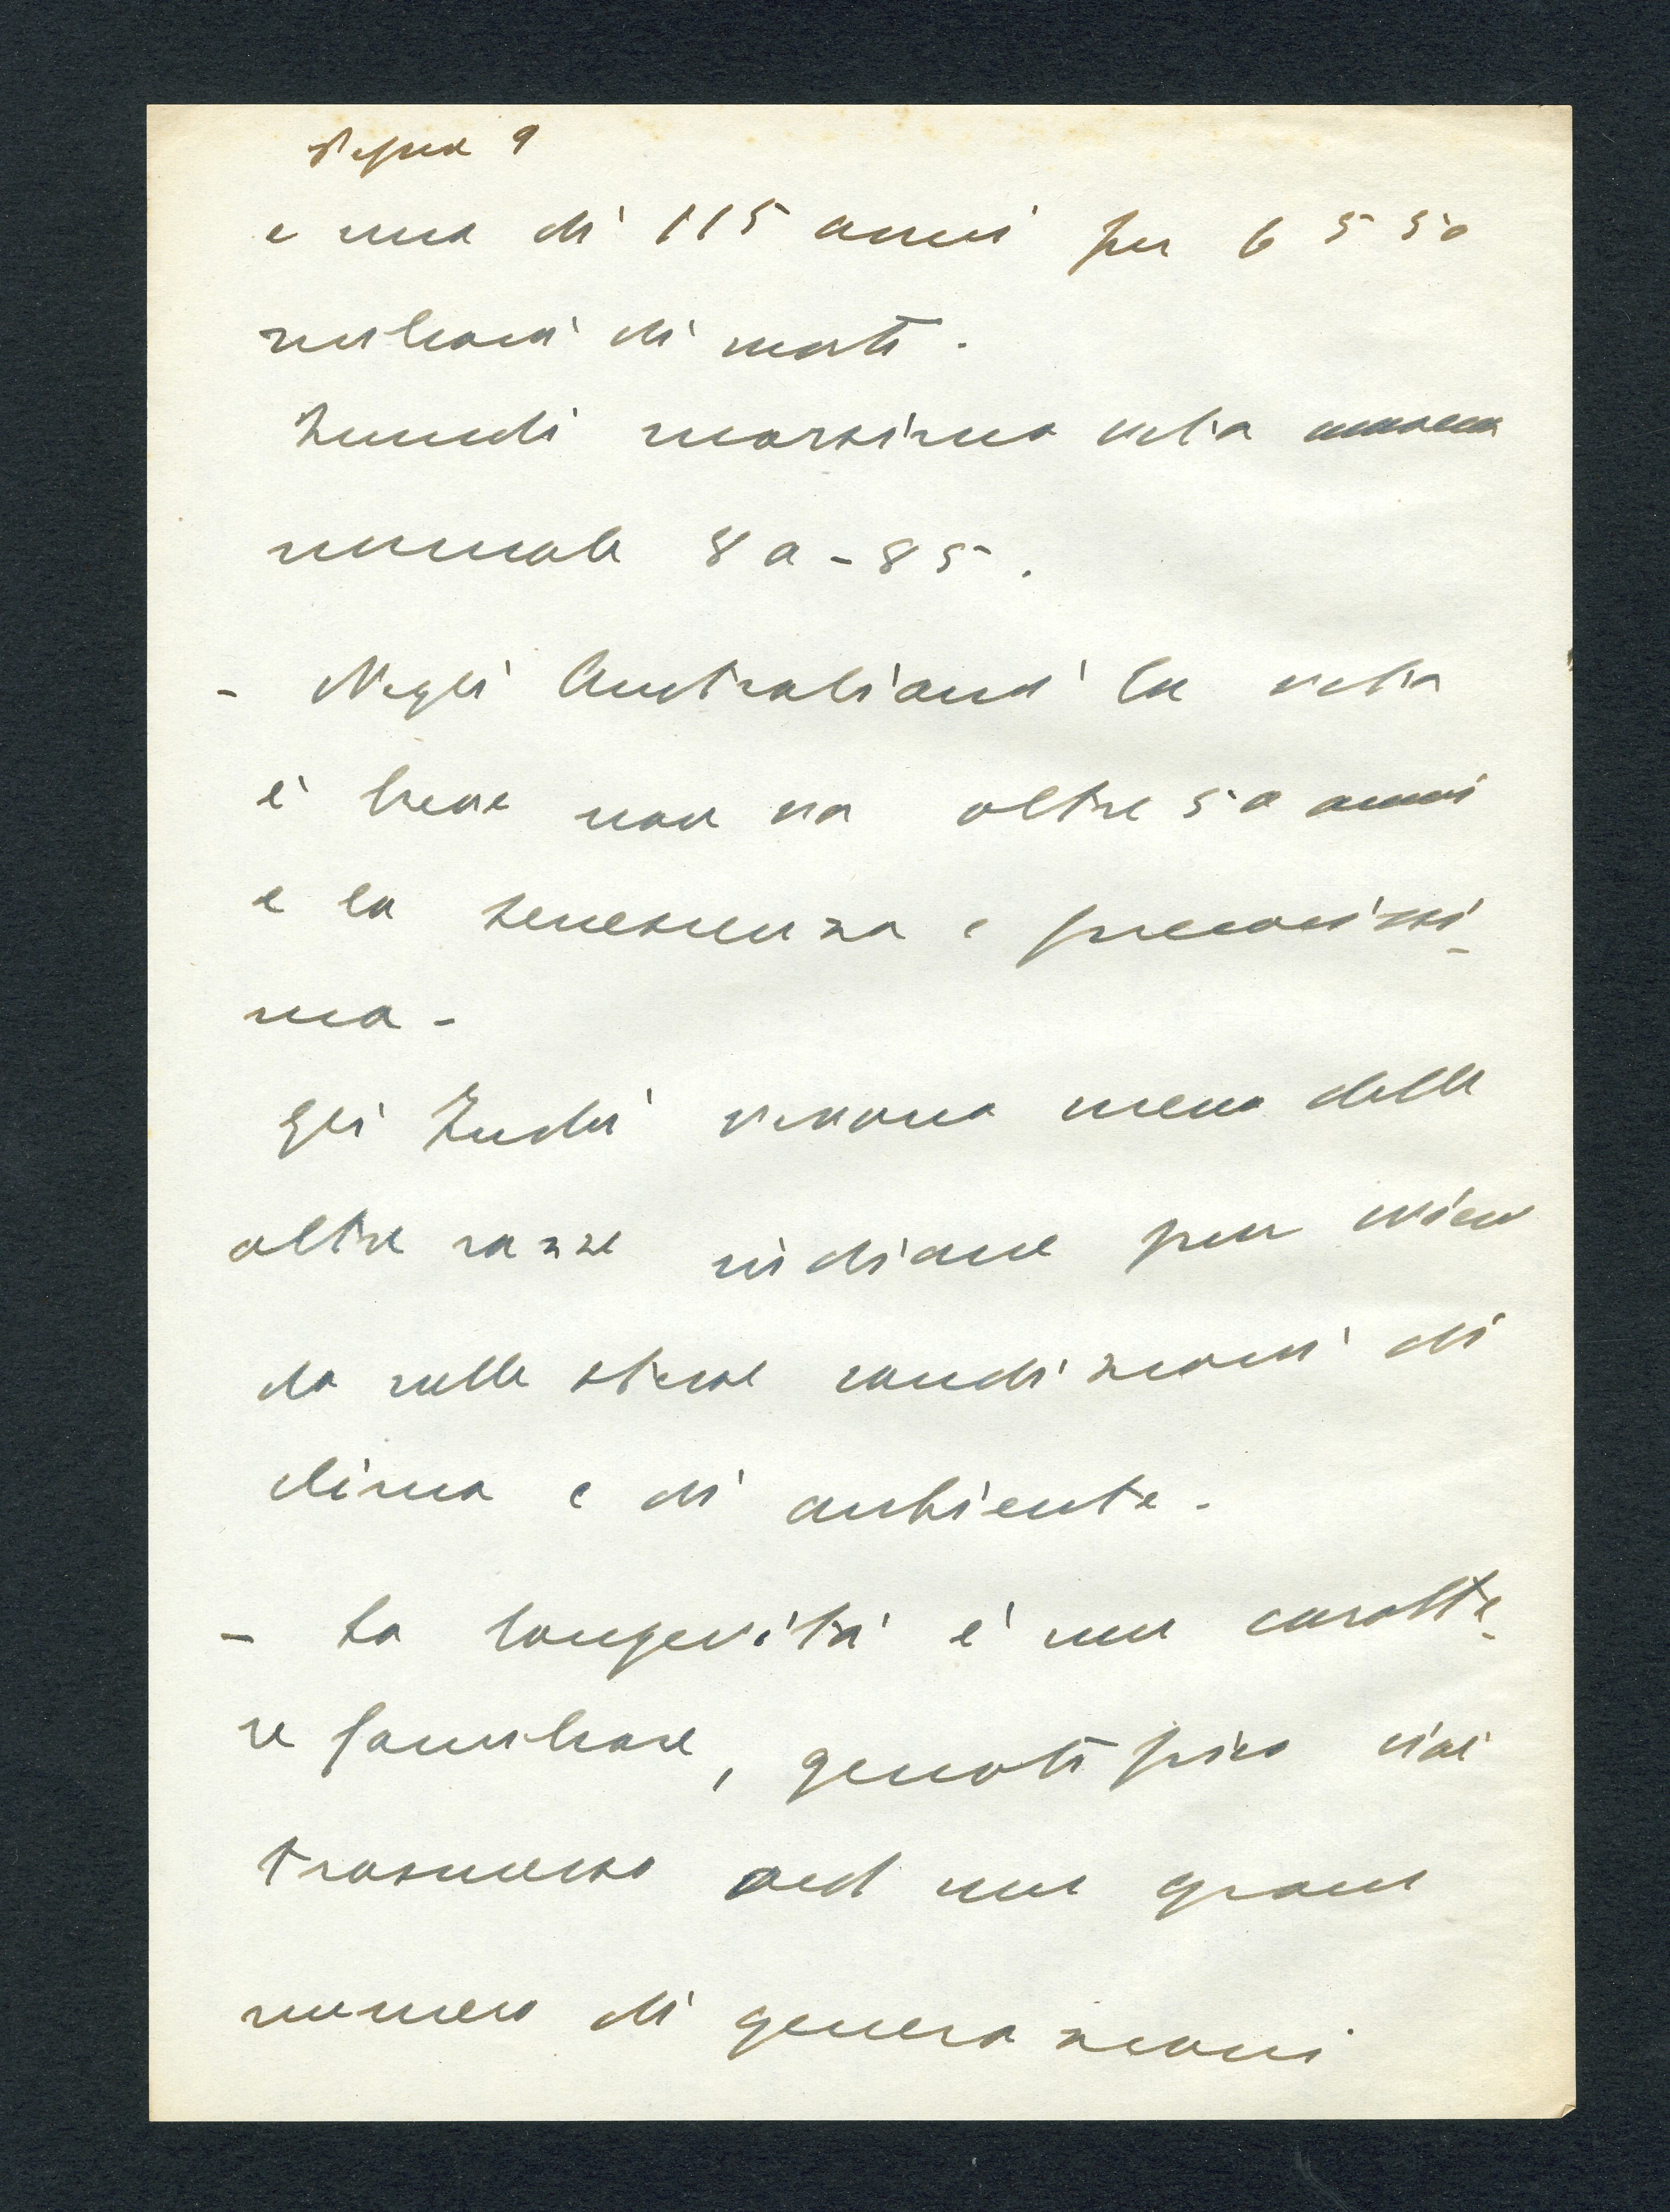 Segue 9
e una di 115 anni per 6 550
milioni di morti.
Quindi massima vita
normale 80-85.
- Negli Australiani la vita
è breve non va oltre 50 anni
e la senescenza e precocissi-
ma -
gli Indù vivono meno delle
altre razze indiane pur viven
do nelle stesse condizioni di
clima e di ambiente.
- La longevità è un caratte-
re familiare, genotipico vien
trasmesso ad un gran
numero di generazioni